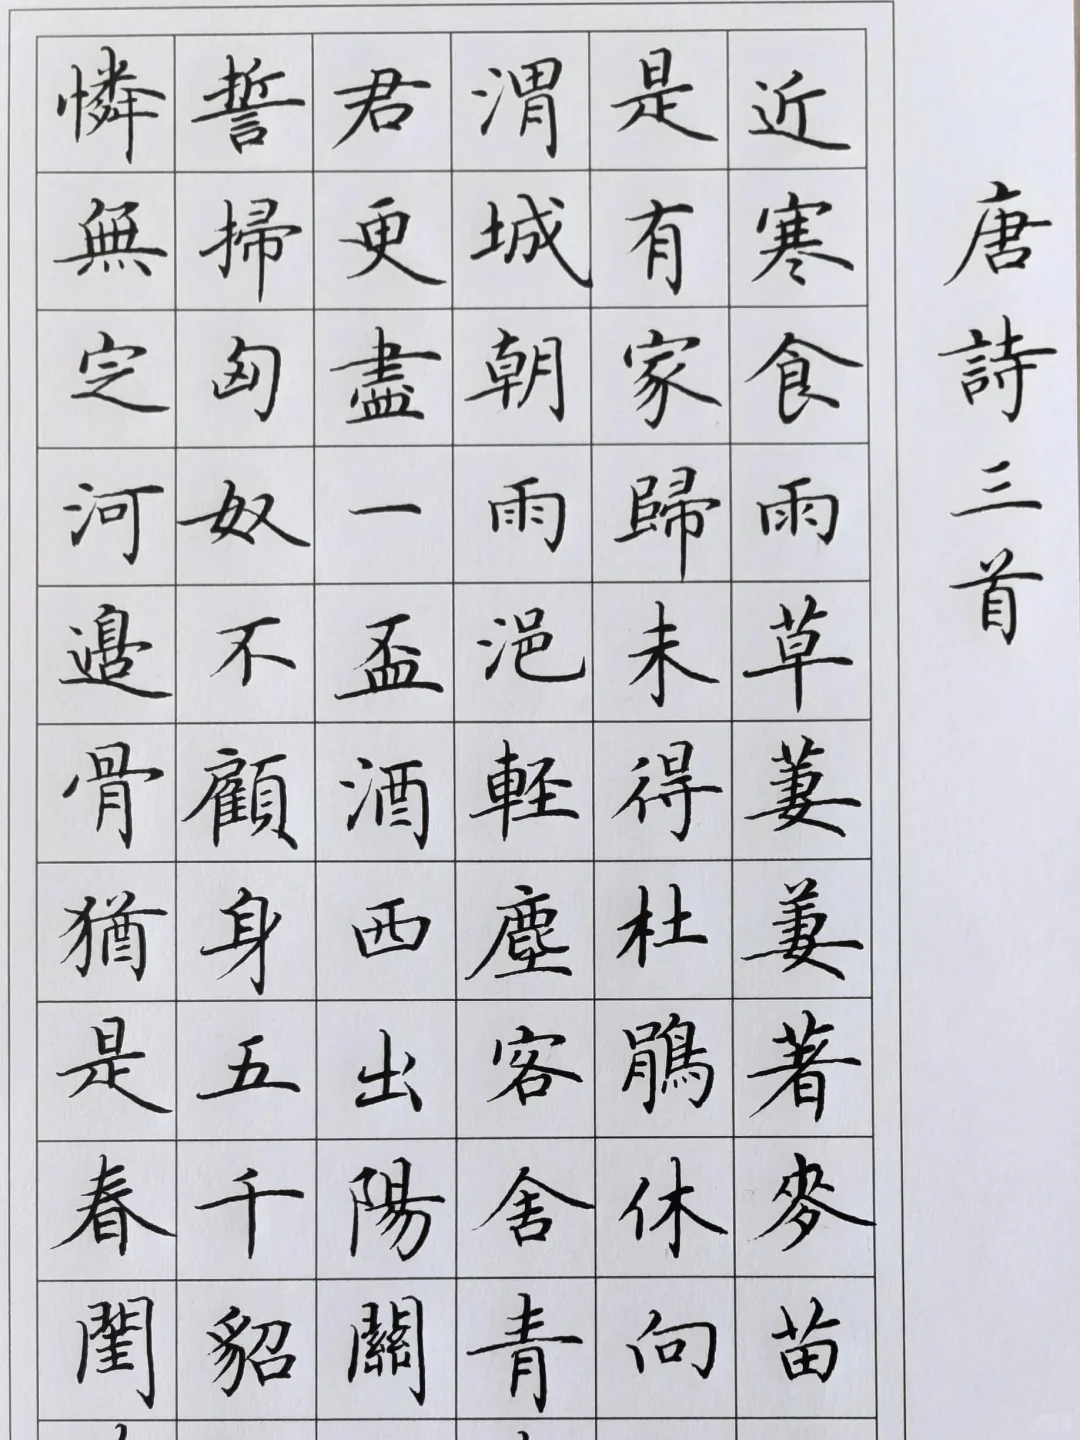 唐詩三首
近寒食雨草萋萋著麥苗
是有家歸未得杜鵑休向
渭城朝雨浥輕塵客舍青
君更盡一盃酒西出陽關
誓掃匈奴不顧身五千貂
憐無定河邊骨猶是春閨